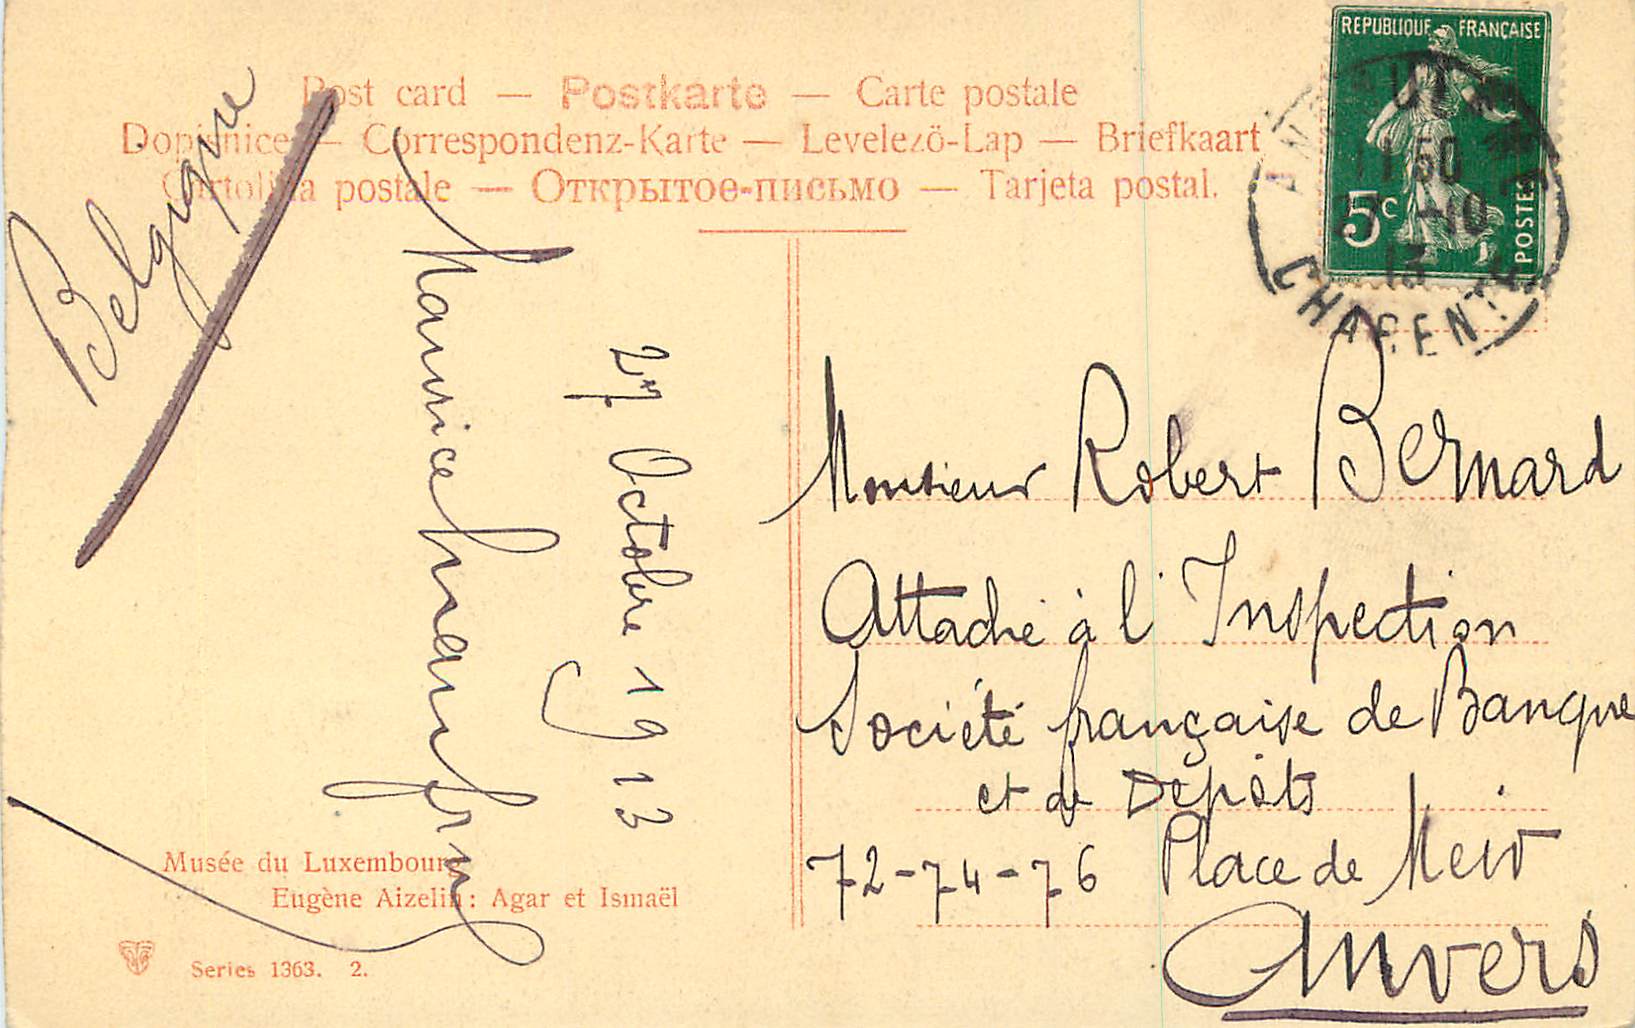 Post card — Postkarte — Carte postale
Dopisnice — Correspondenz-Karte — Levelező-Lap — Briefkaart
Cartolina postale — Открытое-письмо — Tarjeta postal.
Belgique
REPUBLIQUE FRANÇAISE
5c
POSTES
ANGOULEME
11 50
27 -10
13
CHARENTE
27 Octobre 1913
Maurice
Monsieur Robert Bernard
Attaché à l'Inspection
Société française de Banque
et de Dépôts
72-74-76 Place de Meir
Anvers
Musée du Luxembourg
Eugène Aizelin: Agar et Ismaël
Series 1363. 2.